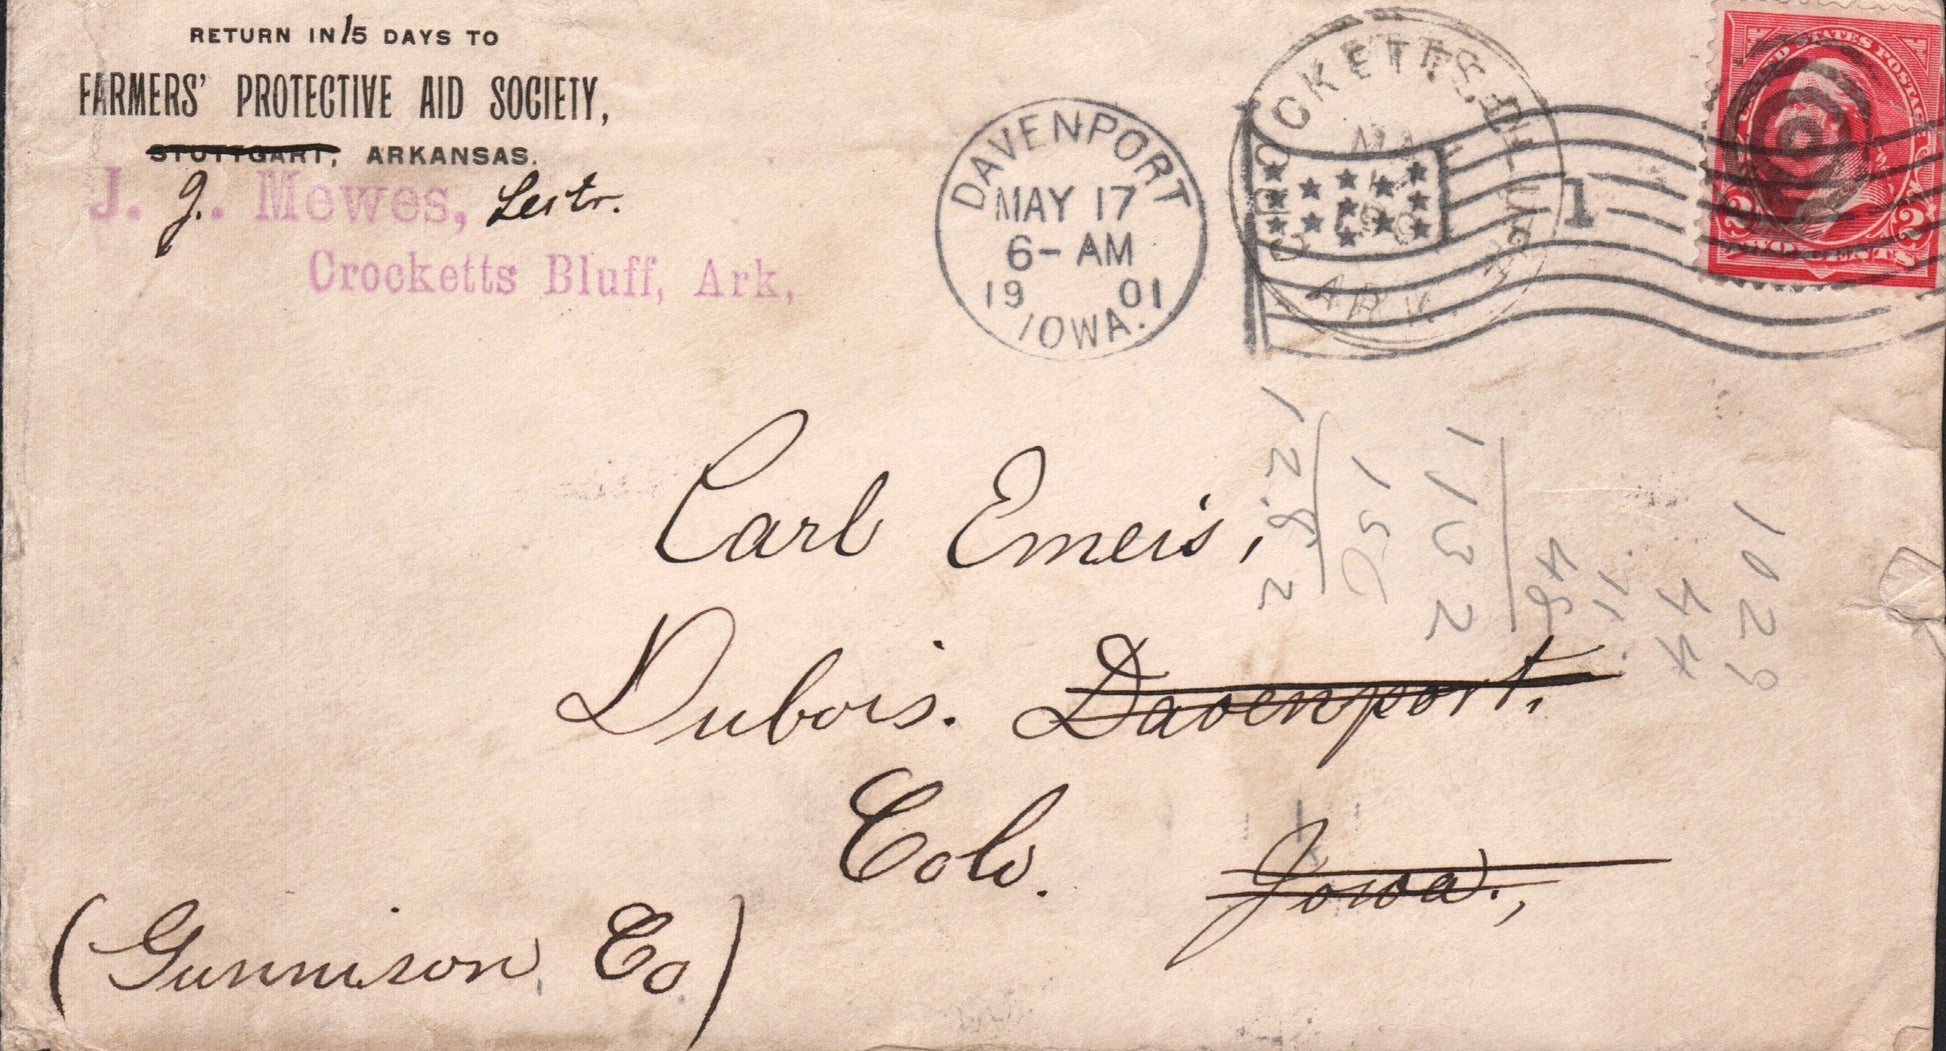 RETURN IN 15 DAYS TO
FARMERS' PROTECTIVE AID SOCIETY,
STUTTGART, ARKANSAS.
J. J. Mewes,
Crocketts Bluff, Ark,
DAVENPORT
MAY 17
6-AM
19 01
IOWA.
CROCKETTS BLUFF
MAY
ARK
1
UNITED STATES POSTAGE
2 2
Carl Emeis,
Dubois. Davenport,
Colo. Iowa.,
(Gunnison, Co)
1132
1029
44